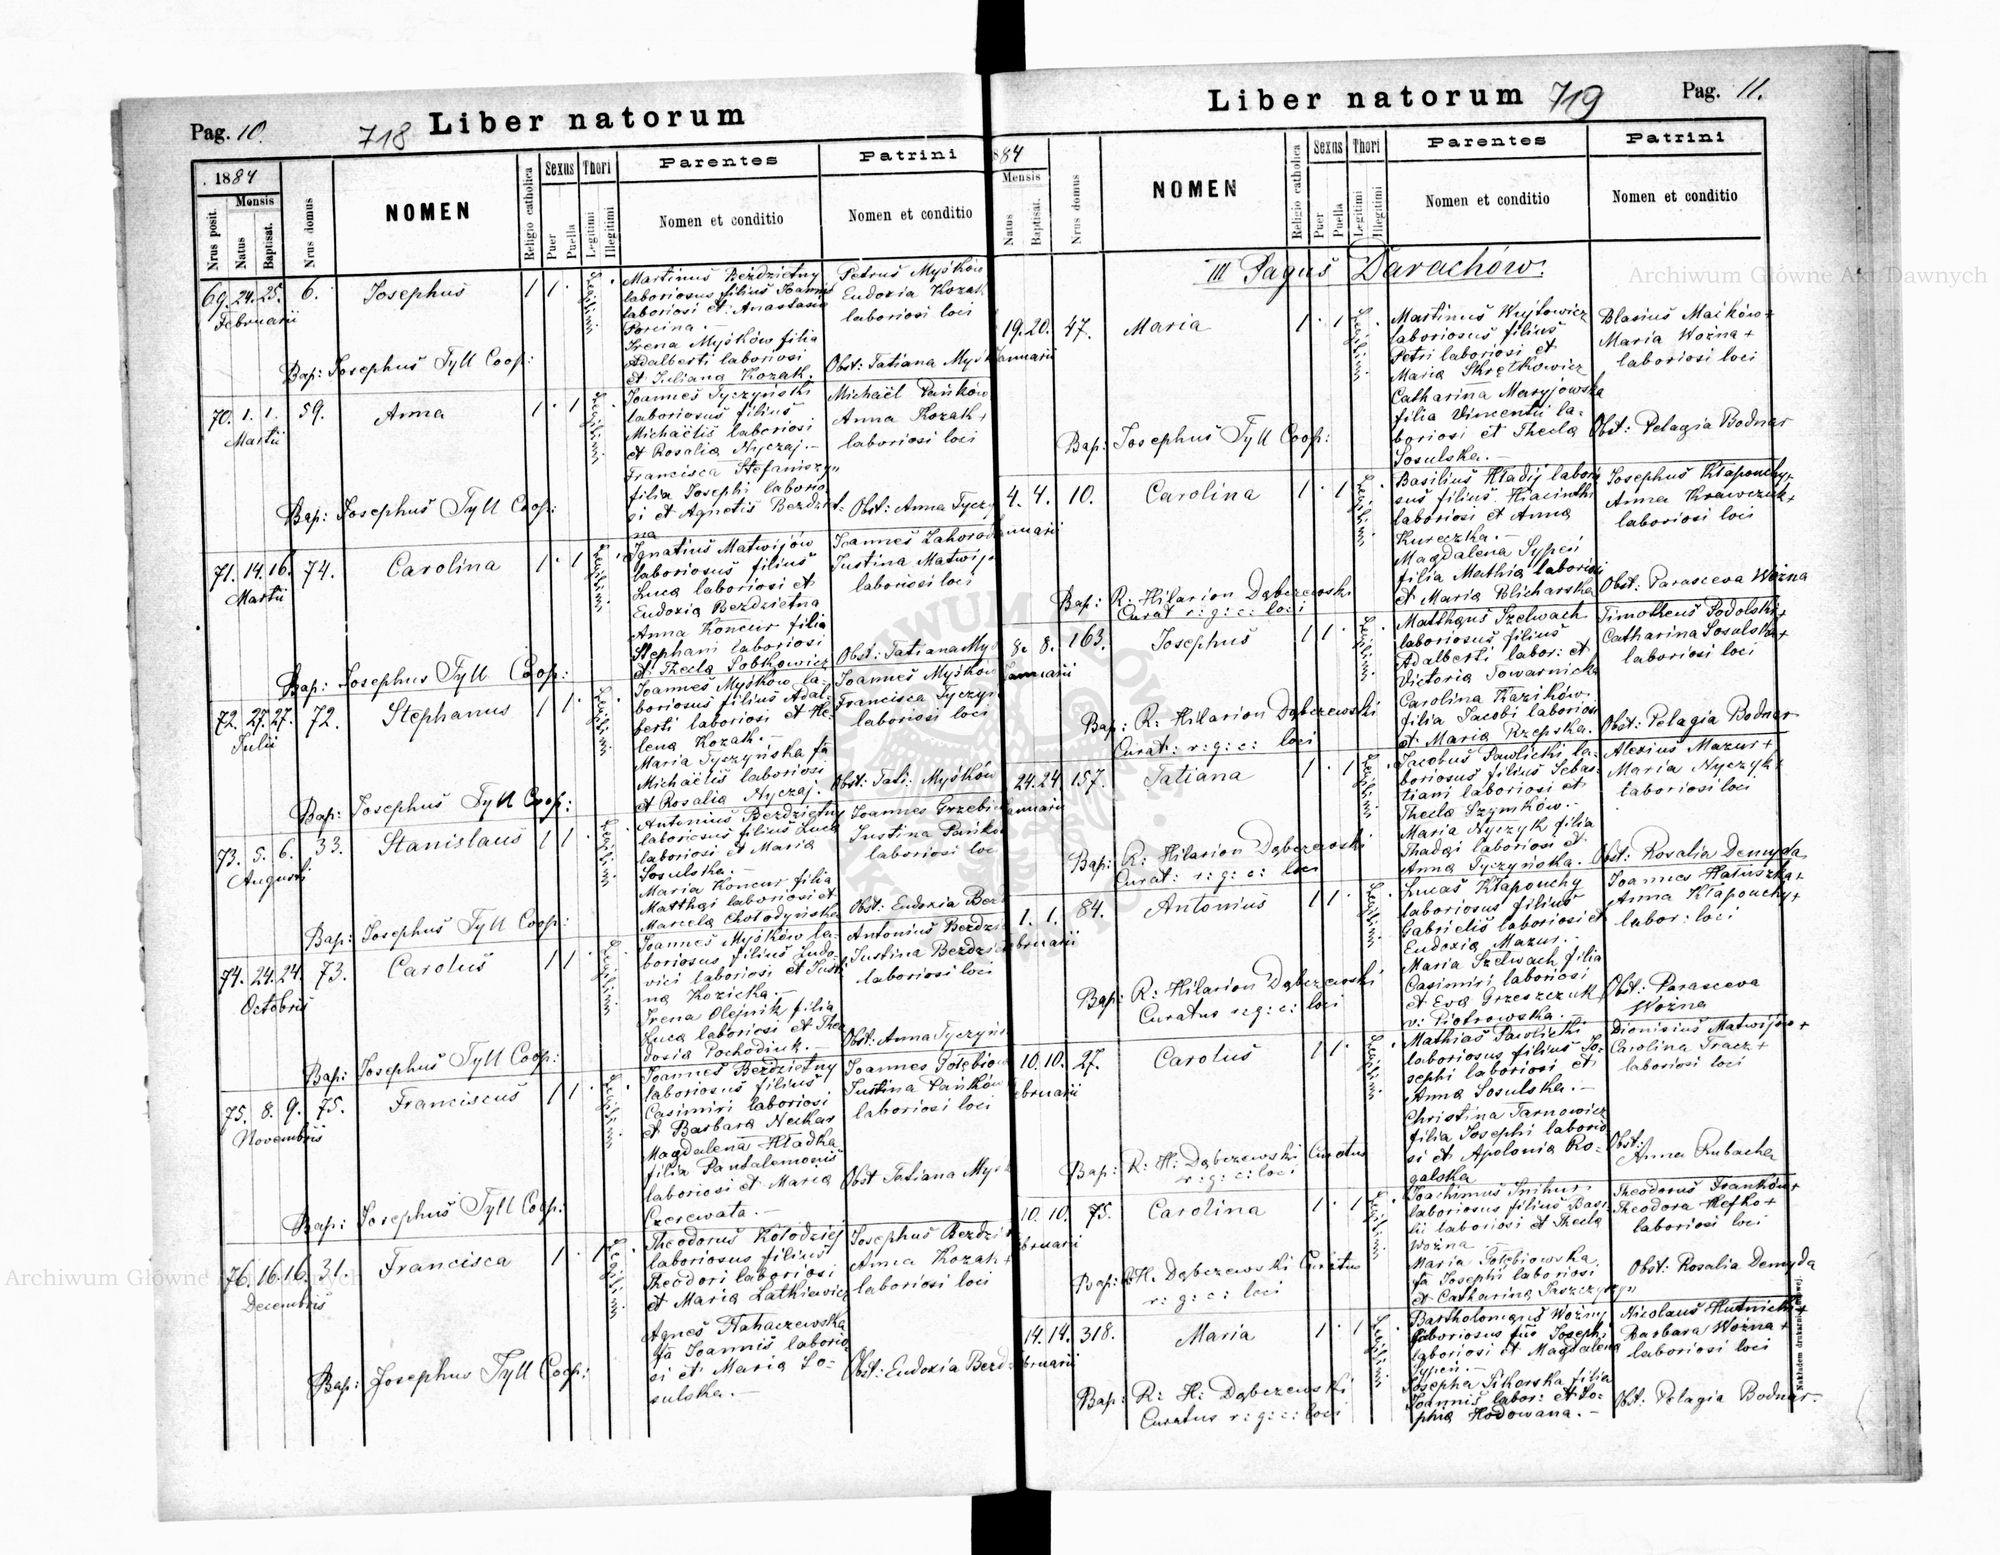 Pag. 10.
718 Liber natorum
1884
Mensis
Nrus posit.
Natus
Baptisat.
Nrus domus
NOMEN
Religio catholica
Sexus
Puer
Puella
Thori
Legitimi
Illegitimi
Parentes
Nomen et conditio
Patrini
Nomen et conditio
69. 24. 25. 6. Josephus 1 1 Legitimi
Februarii
Martinus Bezdzietny
laboriosus filius Joannis
laboriosi et Anastasia
Porcina. —
Irena Myśków filia
Adalberti laboriosi
et Juliana Kozak.
Petrus Myśków
Eudoxia Kozak
laboriosi loci
Bap: Josephus Tyll Coop:
Obst: Tatiana Myśk
70. 1. 1. 59. Anna 1 1 Legitimi
Martii
Joannes Tyczyński
laboriosus filius
Michaëlis laboriosi
et Rosalia Nyczaj. —
Francisca Stefaniszyn
filia Josephi laborio
si et Agnetis Bezdziet
na
Michaël Pańków
Anna Kozak +
laboriosi loci
Bap: Josephus Tyll Coop:
Obst: Anna Tycz
71. 14. 16. 74. Carolina 1 1 Legitimi
Martii
Ignatius Matwijów
laboriosus filius
Luca laboriosi et
Eudoxia Bezdzietna
Anna Koncur filia
Stephani laboriosi
et Thecla Sobkowicz
Joannes Zahorod
Justina Matwij
laboriosi loci
Bap: Josephus Tyll Coop:
Obst: Tatiana Myś
72. 27. 27. 72. Stephanus 1 1 Legitimi
Julii
Joannes Myśków la-
boriosus filius Adal-
berti laboriosi et He-
lena Kozak. —
Maria Tyczyńska fa
Michaëlis laboriosi
et Rosalia Nyczaj.
Joannes Myśków
Francisca Tyczyn
laboriosi loci
Bap: Josephus Tyll Coop:
Obst: Tati: Myśków
73. 5. 6. 33. Stanislaus 1 1 Legitimi
Augusti
Antonius Bezdzietny
laboriosus filius Luca
laboriosi et Maria
Sosulska. —
Maria Koncur filia
Matthai laboriosi et
Marcela Chołodyńska
Joannes Grzebie
Justina Pańkó
laboriosi loc
Bap: Josephus Tyll Coop:
Obst: Eudoxia Bez
74. 24. 24. 73. Carolus 1 1 Legitimi
Octobris
Joannes Myśków la-
boriosus filius Ludo-
vici laboriosi et Justi
na Kozicka. —
Irena Olejnik filia
Luca laboriosi et Theo
dosia Pochodiuk. —
Antonius Bezdzi
Justina Bezdzi
laboriosi loci
Bap: Josephus Tyll Coop:
Obst: Anna Tyczyń
75. 8. 9. 75. Franciscus 1 1 Legitimi
Novembris
Joannes Bezdzietny
laboriosus filius
Casimiri laboriosi
et Barbara Neckar
Magdalena Hładka
filia Pantalemonis
laboriosi et Maria
Czerewata. —
Joannes Gołębiow
Justina Pańków
laboriosi loci
Bap: Josephus Tyll Coop:
Obst Tatiana Myśk
76. 16. 16. 31. Francisca 1 1 Legitimi
Decembris
Theodorus Kołodziej
laboriosus filius
Theodori laboriosi
et Maria Latkiewicz
Agnes Nahaczewska
fa Joannis laborio
si et Maria So-
sulska. —
Josephus Bezdzi
Anna Kozak +
laboriosi loci
Bap: Josephus Tyll Coop:
Obst: Eudoxia Bezd
Liber natorum 719
Pag. 11.
84
Mensis
Natus
Baptisat.
Nrus domus
NOMEN
Religio catholica
Sexus
Puer
Puella
Thori
Legitimi
Illegitimi
Parentes
Nomen et conditio
Patrini
Nomen et conditio
III Pagus Darachów.
19. 20. 47. Maria 1 1 Legitimi
Januarii
Martinus Wujtowicz
laboriosus filius
Petri laboriosi et
Maria Skrętkowicz
Catharina Maryjowska
filia Vincentii la-
boriosi et Thecla
Sosulska. —
Blasius Maików +
Maria Woźna +
laboriosi loci
Bap: Josephus Tyll Coop:
Obst: Pelagia Bodnar
4. 4. 10. Carolina 1 1 Legitimi
Januarii
Basilius Hładij labori
sus filius Hiacinthi
laboriosi et Anna
Kureczka. —
Magdalena Sypeń
filia Mathia laboriosi
et Maria Blicharska
Josephus Kłapouchy +
Anna Krawczuk +
laboriosi loci
Bap: R: Hilarion Dąbczewski
Curat r: g: c: loci
Obst: Parasceva Woźna
8. 8. 163. Josephus 1 1 Legitimi
Januarii
Matthaus Szelwach
laboriosus filius
Adalberti labor: et
Victoria Sowarnicka
Carolina Kazików
filia Jacobi laboriosi
et Maria Rzepska.
Timotheus Podolski +
Catharina Sosulska +
laboriosi loci
Bap: R: Hilarion Dąbczewski
Curat: r: g: c: loci
Obst: Pelagia Bodnar
24. 24 157. Tatiana 1 1 Legitimi
Januarii
Jacobus Pawlicki la-
boriosus filius Sebas-
tiani laboriosi et
Thecla Szymków. —
Maria Nyczyk filia
Thadai laboriosi et
Anna Tyczyńska.
Alexius Mazur +
Maria Nyczyk +
laboriosi loci
Bap: R: Hilarion Dąbczewski
Curat: r: g: c: loci
Obst: Rosalia Demyda
1. 1. 84. Antonius 1 1 Legitimi
bruarii
Lucas Kłapouchy
laboriosus filius
Gabrielis laboriosi et
Eudoxia Mazur. —
Maria Szelwach filia
Casimiri laboriosi
et Eva Grzeszczuk
v: Piotrowska. —
Joannes Hałuszka +
Anna Kłapouchy +
labor: loci
Bap: R: Hilarion Dąbczewski
Curatus r: g: c: loci
Obst: Parasceva
Woźna
10. 10. 27. Carolus 1 1 Legitimi
bruarii
Mathias Pawlicki
laboriosus filius Jo-
sephi laboriosi et
Anna Sosulska. —
Christina Tarnowicz
filia Josephi laborio
si et Apolonia Ro-
galska
Dionisius Matwijów +
Carolina Tracz +
laboriosi loci
Bap: R: H: Dąbczewski Curatus
r: g: c: loci
Obst:
Anna Rubacha
10. 10. 75. Carolina 1 1 Legitimi
bruarii
Joachimus Snihur
laboriosus filius Basi
lii laboriosi et Thecla
Woźna
Maria Gołębiowska
fa Josephi laboriosi
et Catharina Jaszczyszyn
Theodorus Franków +
Theodora Hefko +
laboriosi loci
Bap: R: H. Dąbczewski Curatus
r: g: c: loci
Obst: Rosalia Demyda
14. 14. 318. Maria 1 1 Legitimi
bruarii
Bartholomaus Woźny
laboriosus fius Josephi
laboriosi et Magdalena
Sypeń. —
Josepha Sikorska filia
Joannis labor: et So-
phia Hodowana. —
Nicolaus Hutnicki +
Barbara Woźna +
laboriosi loci
Bap: R: H: Dąbczewski
Curatus r: g: c: loci
Obst: Pelagia Bodnar.
Nakładem drukarni
Archiwum Główne Akt Dawnych
Archiwum Główne Akt Dawnych